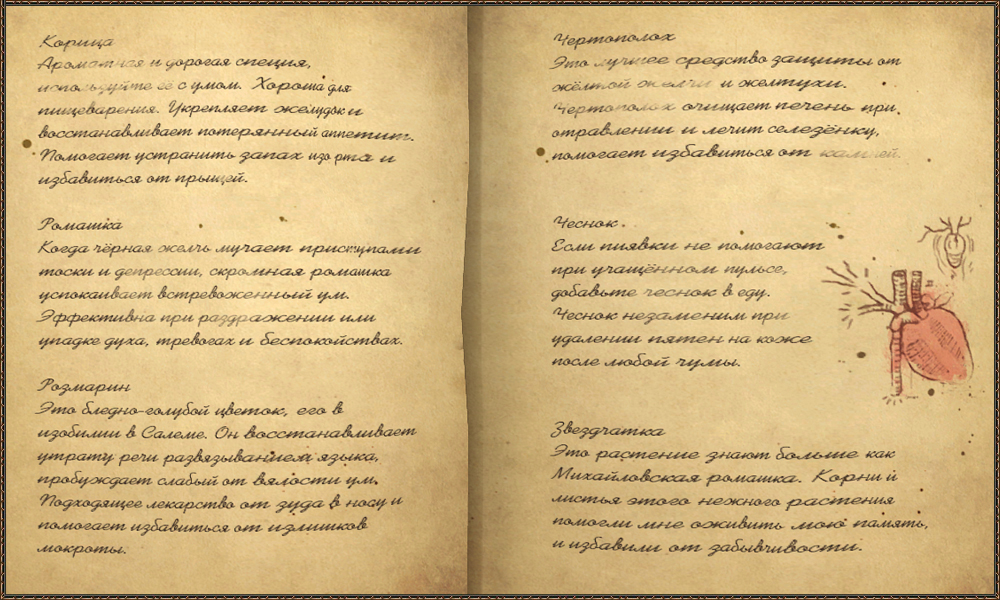 Корица
Ароматная и дорогая специя,
используйте её с умом. Хороша для
пищеварения. Укрепляет желудок и
восстанавливает потерянный аппетит.
Помогает устранить запах изо рта и
избавиться от прыщей.
Ромашка
Когда чёрная желчь мучает приступами
тоски и депрессии, скромная ромашка
успокаивает встревоженный ум.
Эффективна при раздражении или
упадке духа, тревогах и беспокойствах.
Розмарин
Это бледно-голубой цветок, его в
изобилии в Салеме. Он восстанавливает
утрату речи развязыванием языка,
пробуждает слабый от вялости ум.
Подходящее лекарство от зуда в носу и
помогает избавиться от излишков
мокроты.
Чертополох
Это лучшее средство защиты от
жёлтой желчи и желтухи.
Чертополох очищает печень при
отравлении и лечит селезёнку,
помогает избавиться от камней.
Чеснок.
Если пиявки не помогают
при учащённом пульсе,
добавьте чеснок в еду.
Чеснок незаменим при
удалении пятен на коже
после любой чумы.
Звездчатка
Это растение знают больше как
Михайловская ромашка. Корни и
листья этого нежного растения
помогли мне оживить мою память,
и избавили от забывчивости.